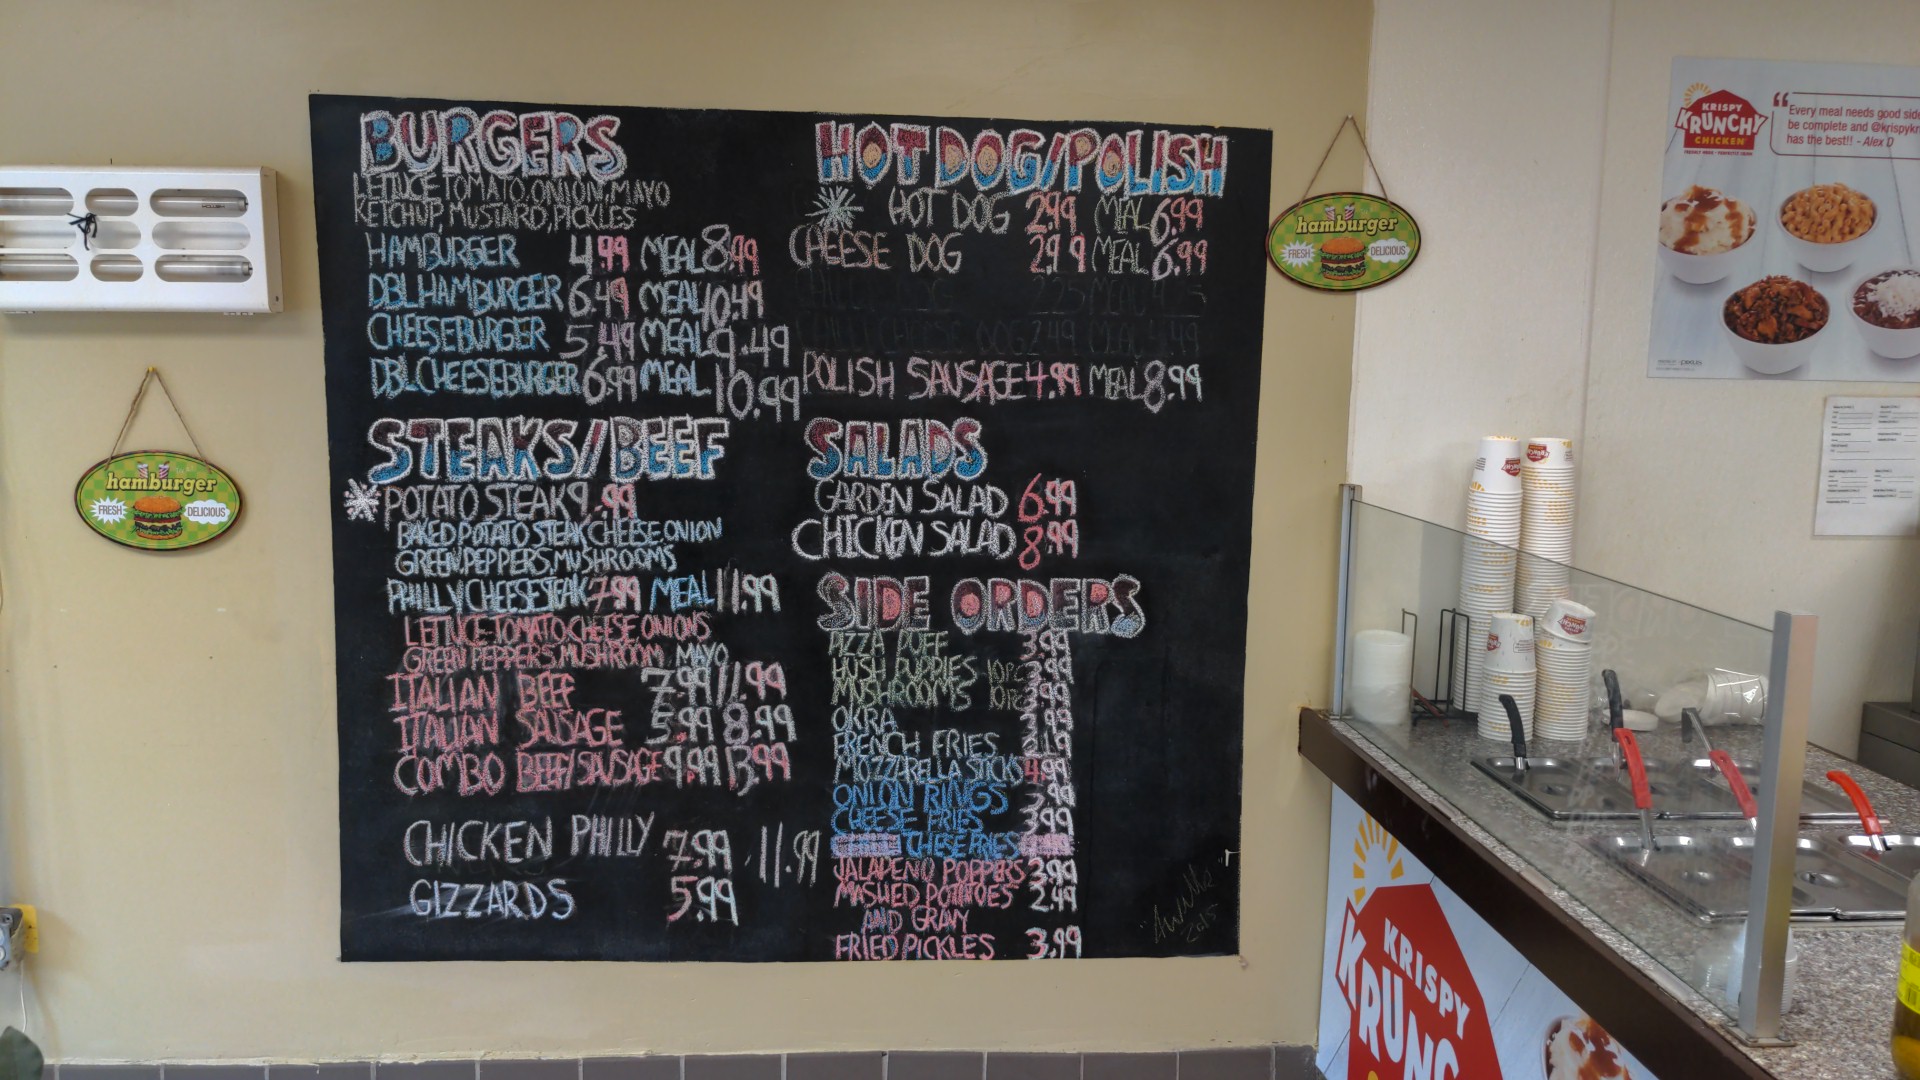 BURGERS
LETTUCE, TOMATO, ONION, MAYO
KETCHUP, MUSTARD, PICKLES
HAMBURGER 4.99 MEAL 8.99
DBL HAMBURGER 6.49 MEAL 10.49
CHEESEBURGER 5.49 MEAL 9.49
DBLCHEESEBURGER 6.99 MEAL 10.99
STEAKS/BEEF
POTATO STEAK 9.99
BAKED POTATO STEAK CHEESE, ONION
GREEN, PEPPERS, MUSHROOMS
PHILLY CHEESESTEAK 7.99 MEAL 11.99
LETTUCE-TOMATO, CHEESE, ONIONS
GREEN PEPPERS, MUSHROOM, MAYO
ITALIAN BEEF 7.99 11.99
ITALIAN SAUSAGE 5.99 8.99
COMBO BEEF/SAUSAGE 9.99 13.99
CHICKEN PHILLY 7.99 11.99
GIZZARDS 5.99
HOT DOG/POLISH
HOT DOG 2.99 MEAL 6.99
CHEESE DOG 2.99 MEAL 6.99
CHILI DOG 2.25 MEAL
CHILI CHEESE DOG 2.49 MEAL
POLISH SAUSAGE 4.99 MEAL 8.99
SALADS
GARDEN SALAD 6.99
CHICKEN SALAD 8.99
SIDE ORDERS
PIZZA PUFF 3.99
HUSH PUPPIES 10PC 3.99
MUSHROOMS 10PC 3.99
OKRA 2.99
FRENCH FRIES 2.19
MOZZARELLA STICKS 4.99
ONION RINGS 3.99
CHEESE FRIES 3.99
CHEESE FRIES
JALAPENO POPPERS 3.99
MASHED POTATOES 2.49
AND GRAVY
FRIED PICKLES 3.99
2015
hamburger
FRESH
DELICIOUS
hamburger
FRESH
DELICIOUS
KRISPY
KRUNCHY
CHICKEN
"Every meal needs good side
be complete and @krispykr
has the best!! - Alex D
KRISPY
KRUNC